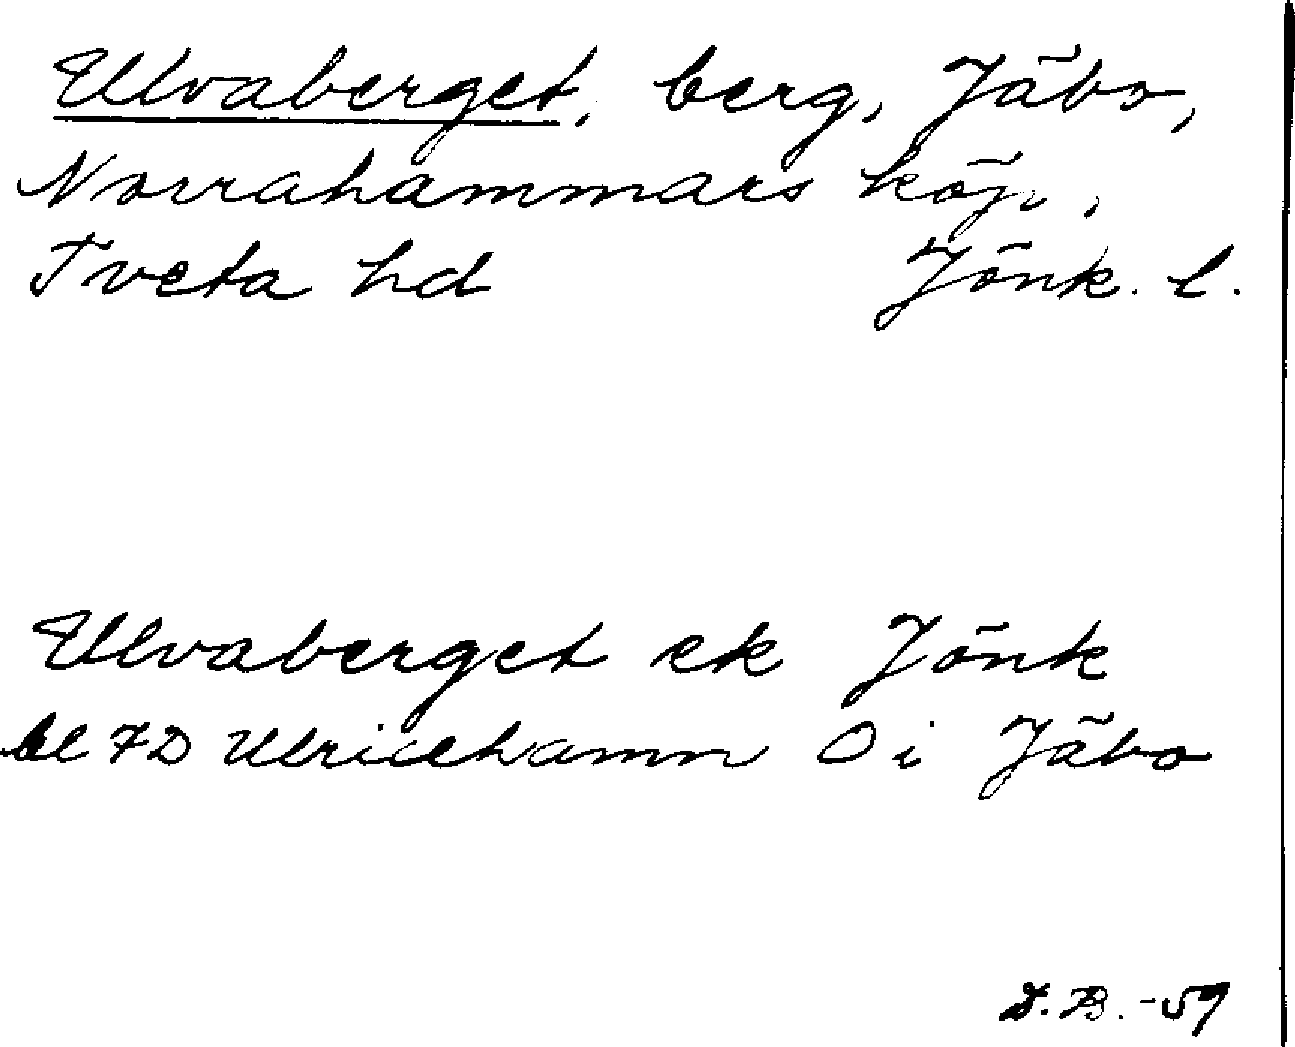 Ulvaberget, berg, Jäbo,
Norrahammars köp.,
Tveta hd Jönk. l.
Ulvaberget ek Jönk
bl 7D Ulricehamn O i Jäbo
D.B. -59